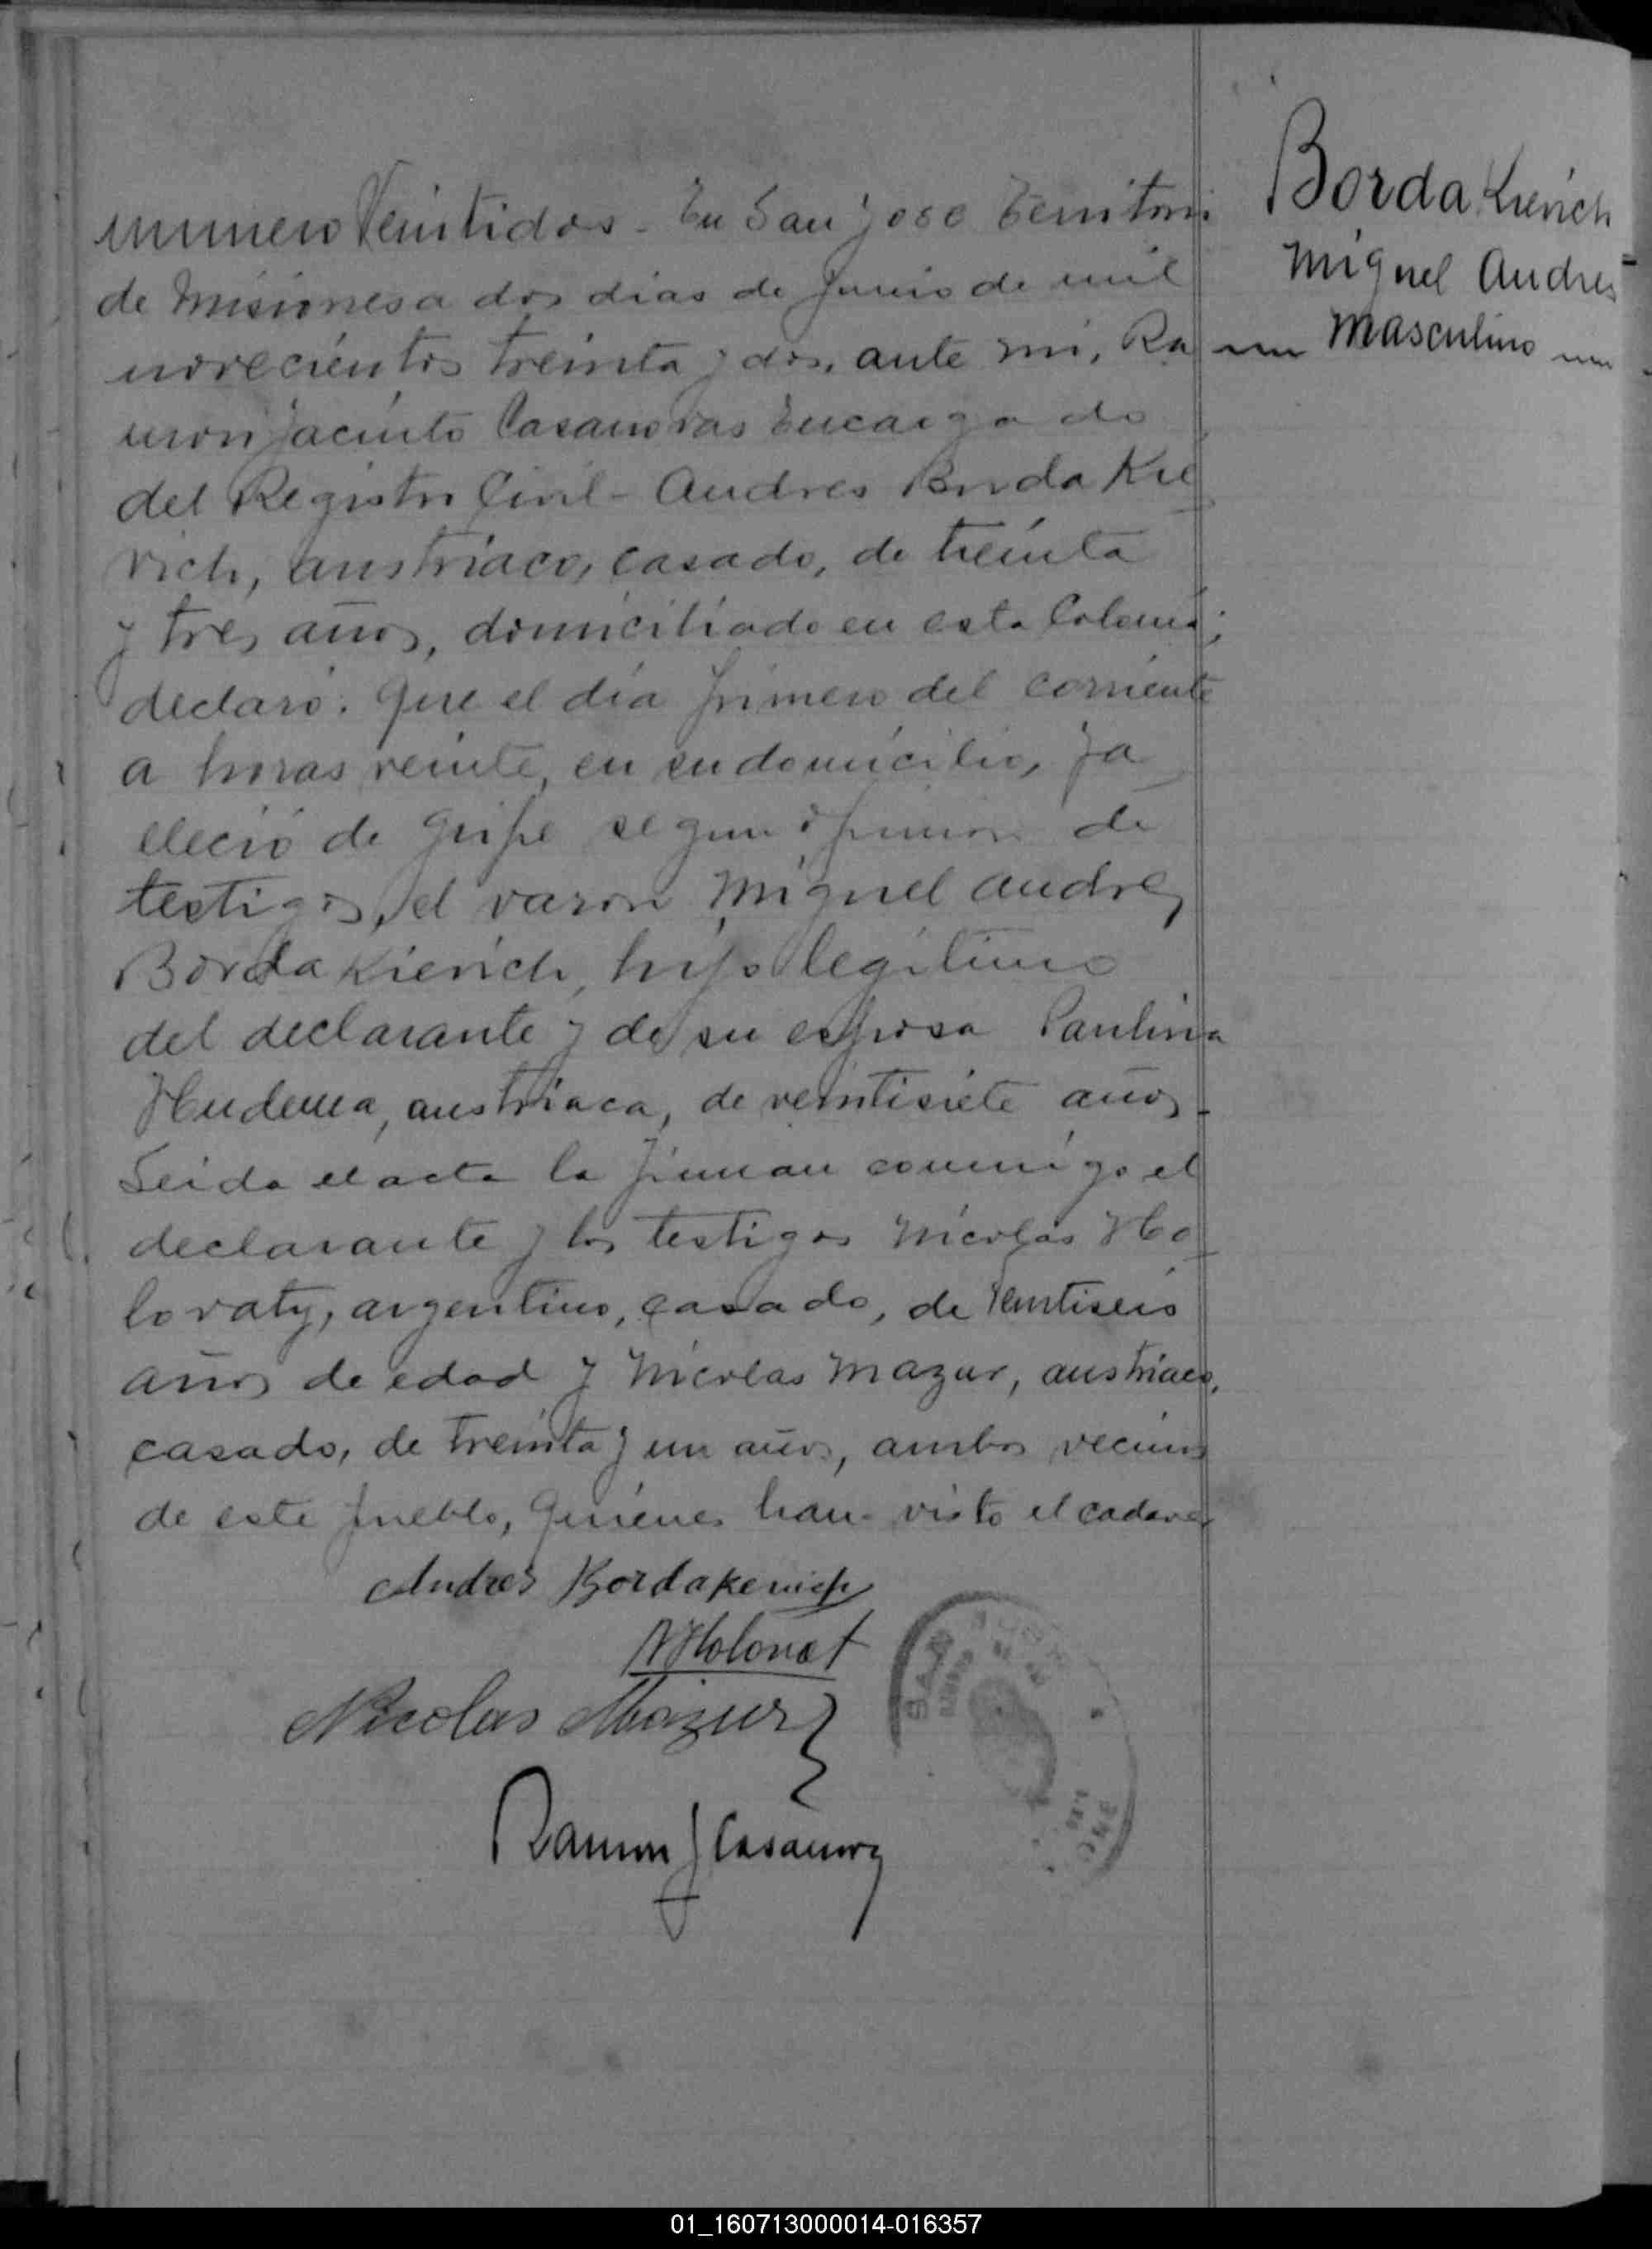 Borda Kierich
Miguel Andres
Masculino
numero Veintidos - En San José Territorio
de Misiones a dos dias de Junio de mil
novecientos treinta y dos, ante mi, Ra
mon Jacinto Casanovas Encargado
del Registro Civil - Andres Borda Kie
rich, austriaco, casado, de treinta
y tres años, domiciliado en esta Colonia;
declaró: Que el dia primero del corriente
a horas veinte, en su domicilio, fa
lleció de gripe segun opinion de
testigos, el varon Miguel Andres
Borda Kierich, hijo legitimo
del declarante y de su esposa Paulina
Hudema, austriaca, de veintisiete años -
Leida el acta la firman conmigo el
declarante y los testigos Nicolás Ho
lovaty, argentino, casado, de Veintiseis
años de edad y Nicolas Mazur, austriaco,
casado, de treinta y un años, ambos vecinos
de este pueblo, quienes han visto el cadaver
Andres Bordakevich
N Holovat
Nicolas Mazur
Ramon J Casanova
SAN JOSE
01_160713000014-016357